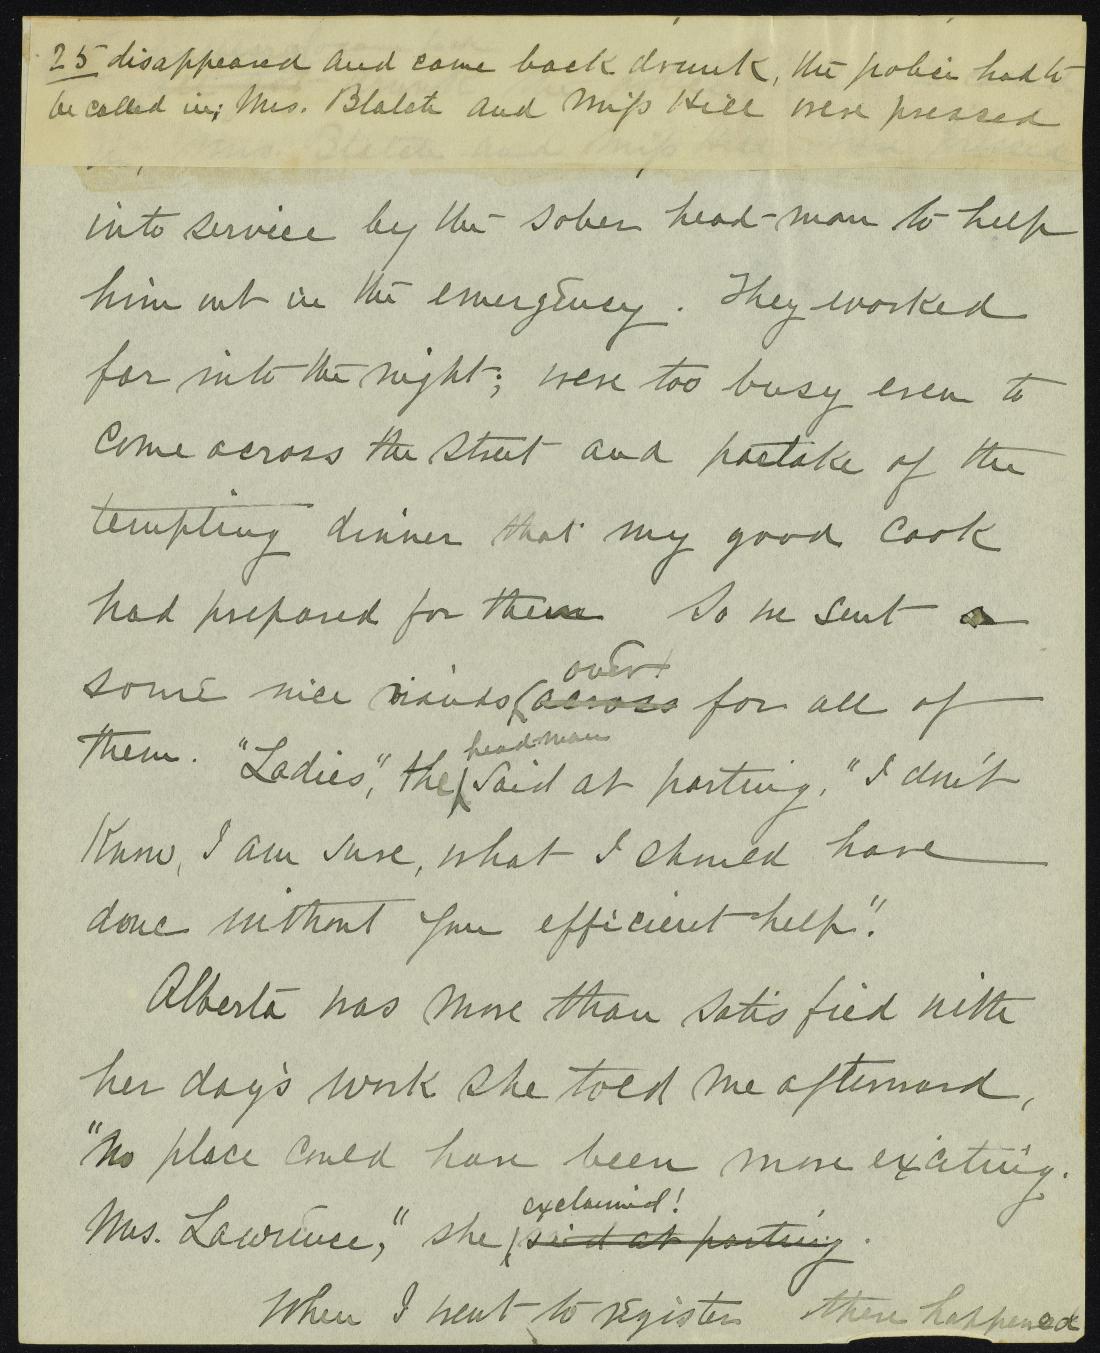 25 disappeared and came back drunk, the police had to
be called in; Mrs. Blatch and Miss Hill were pressed
into service by the sober head-man to help
him out in the emergency. They worked
far into the night; were too busy even to
come across the street and partake of the
tempting dinner that my good cook
had prepared for them So we sent
over
some nice viands (across for all of
headman
them. "Ladies", the said at parting, "I don't
know, I am sure, what I should have
done without your efficient help".
Alberta was more than satisfied with
her day's work she told me afterward,
"No place could have been more exciting.
exclaimed!
Mrs. Lawrence," she (said at parting.
When I went to register there happened